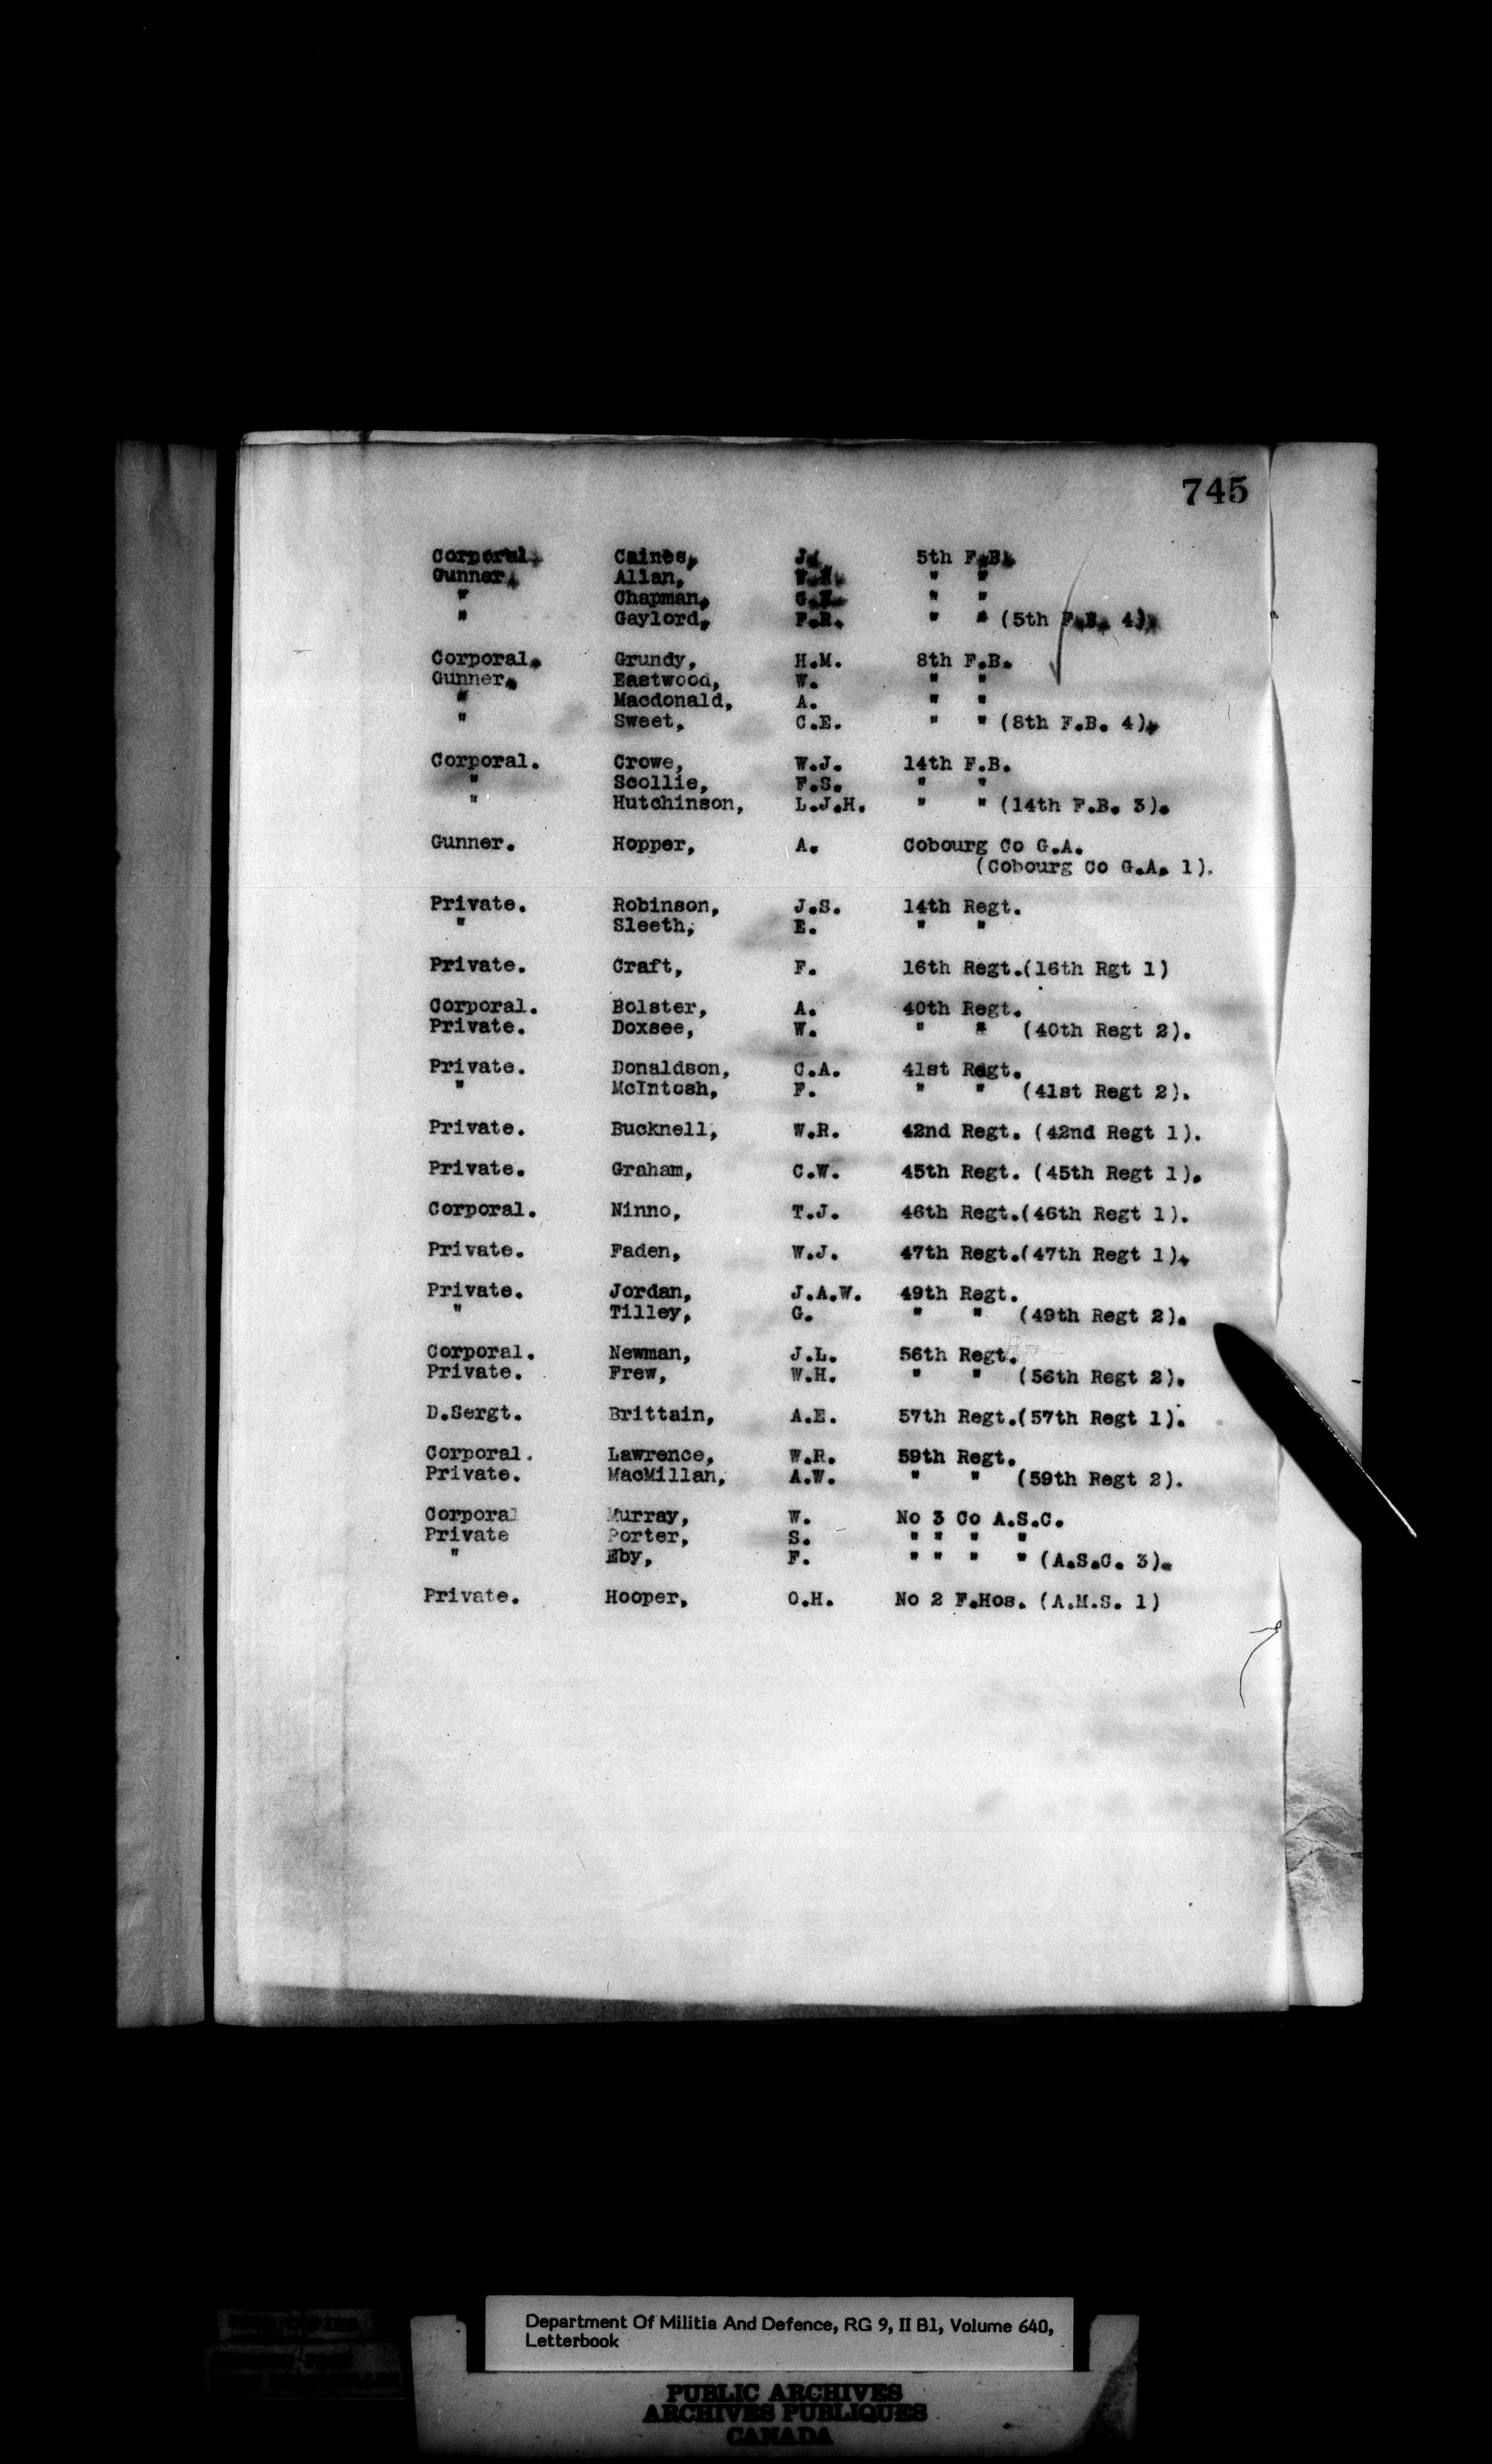 745
Corporal. Caines, J. 5th F.B.
Gunner. Allan, " "
" Chapman, " "
" Gaylord, F.R. " " (5th F.B. 4).
Corporal. Grundy, H.M. 8th F.B.
Gunner. Eastwood, W. " "
" Macdonald, A. " "
" Sweet, C.E. " " (8th F.B. 4).
Corporal. Crowe, W.J. 14th F.B.
" Scollie, F.S. " "
" Hutchinson, L.J.H. " " (14th F.B. 3).
Gunner. Hopper, A. Cobourg Co G.A.
(Cobourg Co G.A. 1).
Private. Robinson, J.S. 14th Regt.
" Sleeth, E. " "
Private. Craft, F. 16th Regt.(16th Rgt 1)
Corporal. Bolster, A. 40th Regt.
Private. Doxsee, W. " " (40th Regt 2).
Private. Donaldson, C.A. 41st Regt.
" McIntosh, F. " " (41st Regt 2).
Private. Bucknell, W.R. 42nd Regt. (42nd Regt 1).
Private. Graham, C.W. 45th Regt. (45th Regt 1).
Corporal. Ninno, T.J. 46th Regt.(46th Regt 1).
Private. Faden, W.J. 47th Regt.(47th Regt 1).
Private. Jordan, J.A.W. 49th Regt.
" Tilley, G. " " (49th Regt 2).
Corporal. Newman, J.L. 56th Regt.
Private. Frew, W.H. " " (56th Regt 2).
D.Sergt. Brittain, A.E. 57th Regt.(57th Regt 1).
Corporal. Lawrence, W.R. 59th Regt.
Private. MacMillan, A.W. " " (59th Regt 2).
Corporal Murray, W. No 3 Co A.S.C.
Private Porter, S. " " " "
" Eby, F. " " " " (A.S.C. 3).
Private. Hooper, O.H. No 2 F.Hos. (A.M.S. 1)
Department Of Militia And Defence, RG 9, II B1, Volume 640,
Letterbook
PUBLIC ARCHIVES
ARCHIVES PUBLIQUES
CANADA